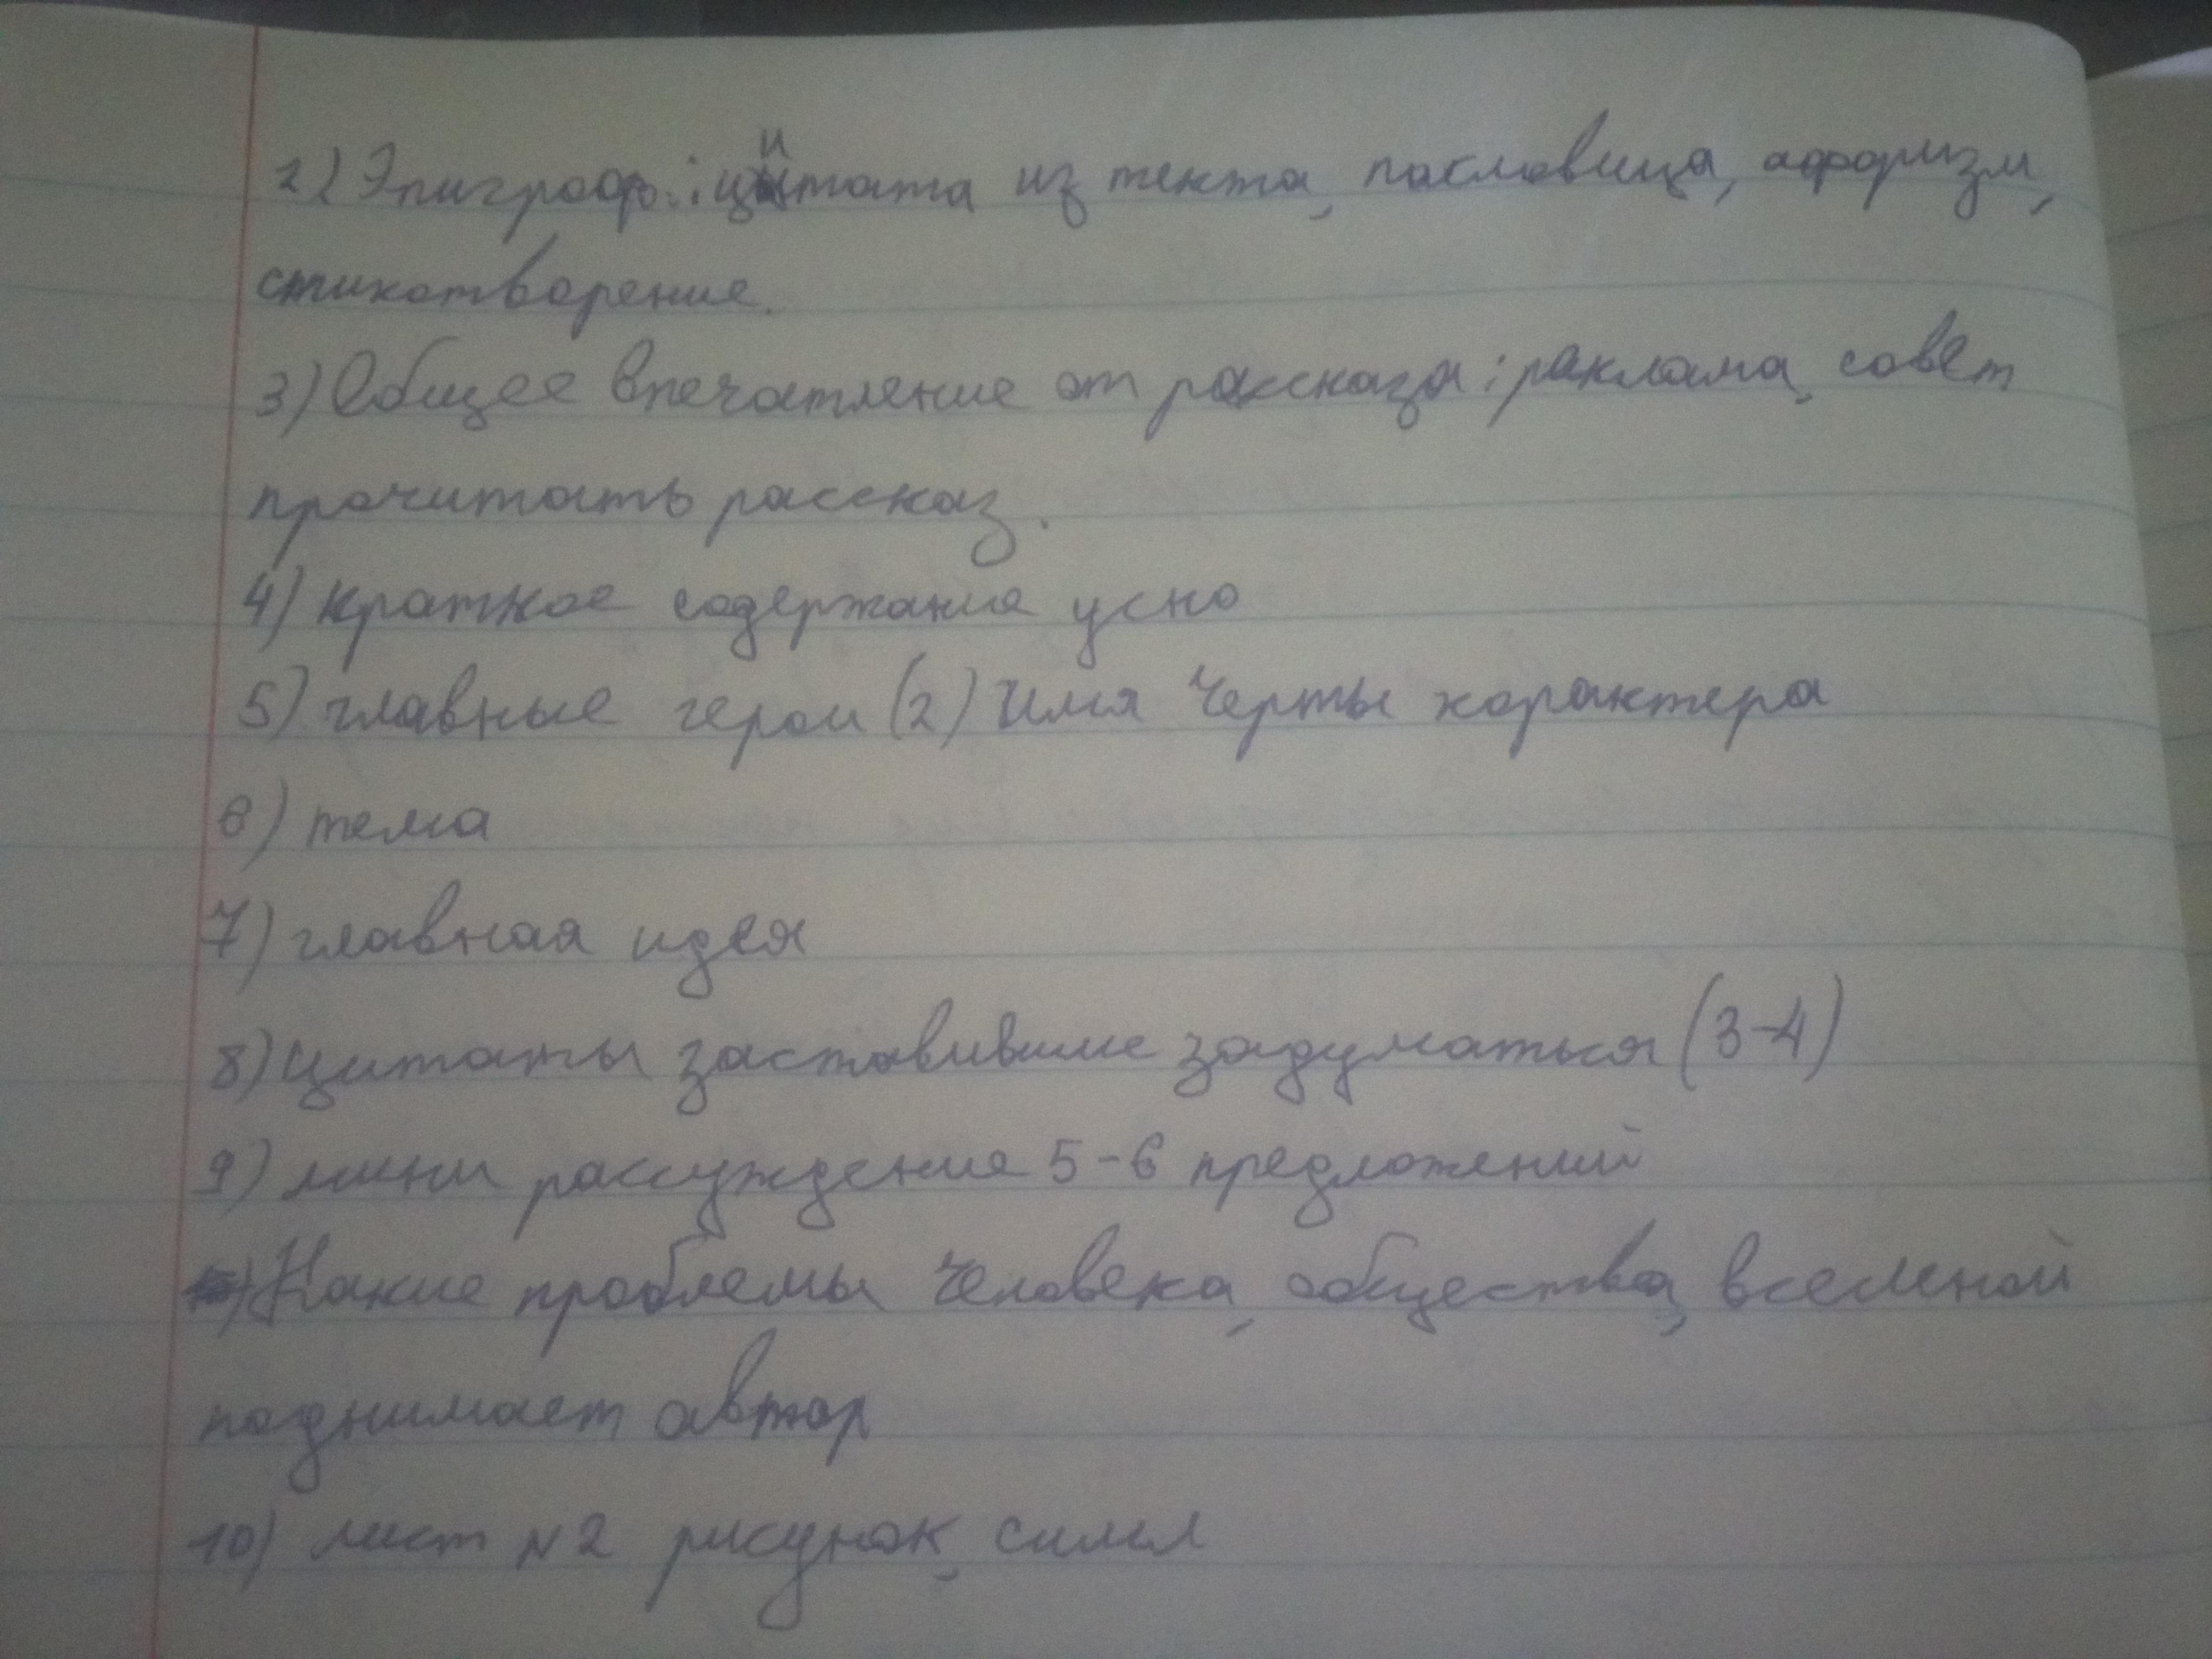 2) Эпиграф: цитата из текта, пословица, афоризм,
стихотворение.
3) Общее впечатление от рассказа: реклама, совет
прочитать рассказ.
4) краткое содержание усно
5) главные герои (2) Имя Черты характера
6) тема
7) главная идея
8) Цитаты заставившие задуматься (3-4)
9) мини рассуждение 5-6 предложений
Какие проблемы Человека, общества, вселеной
поднимает автор
10) лист №2 рисунок,